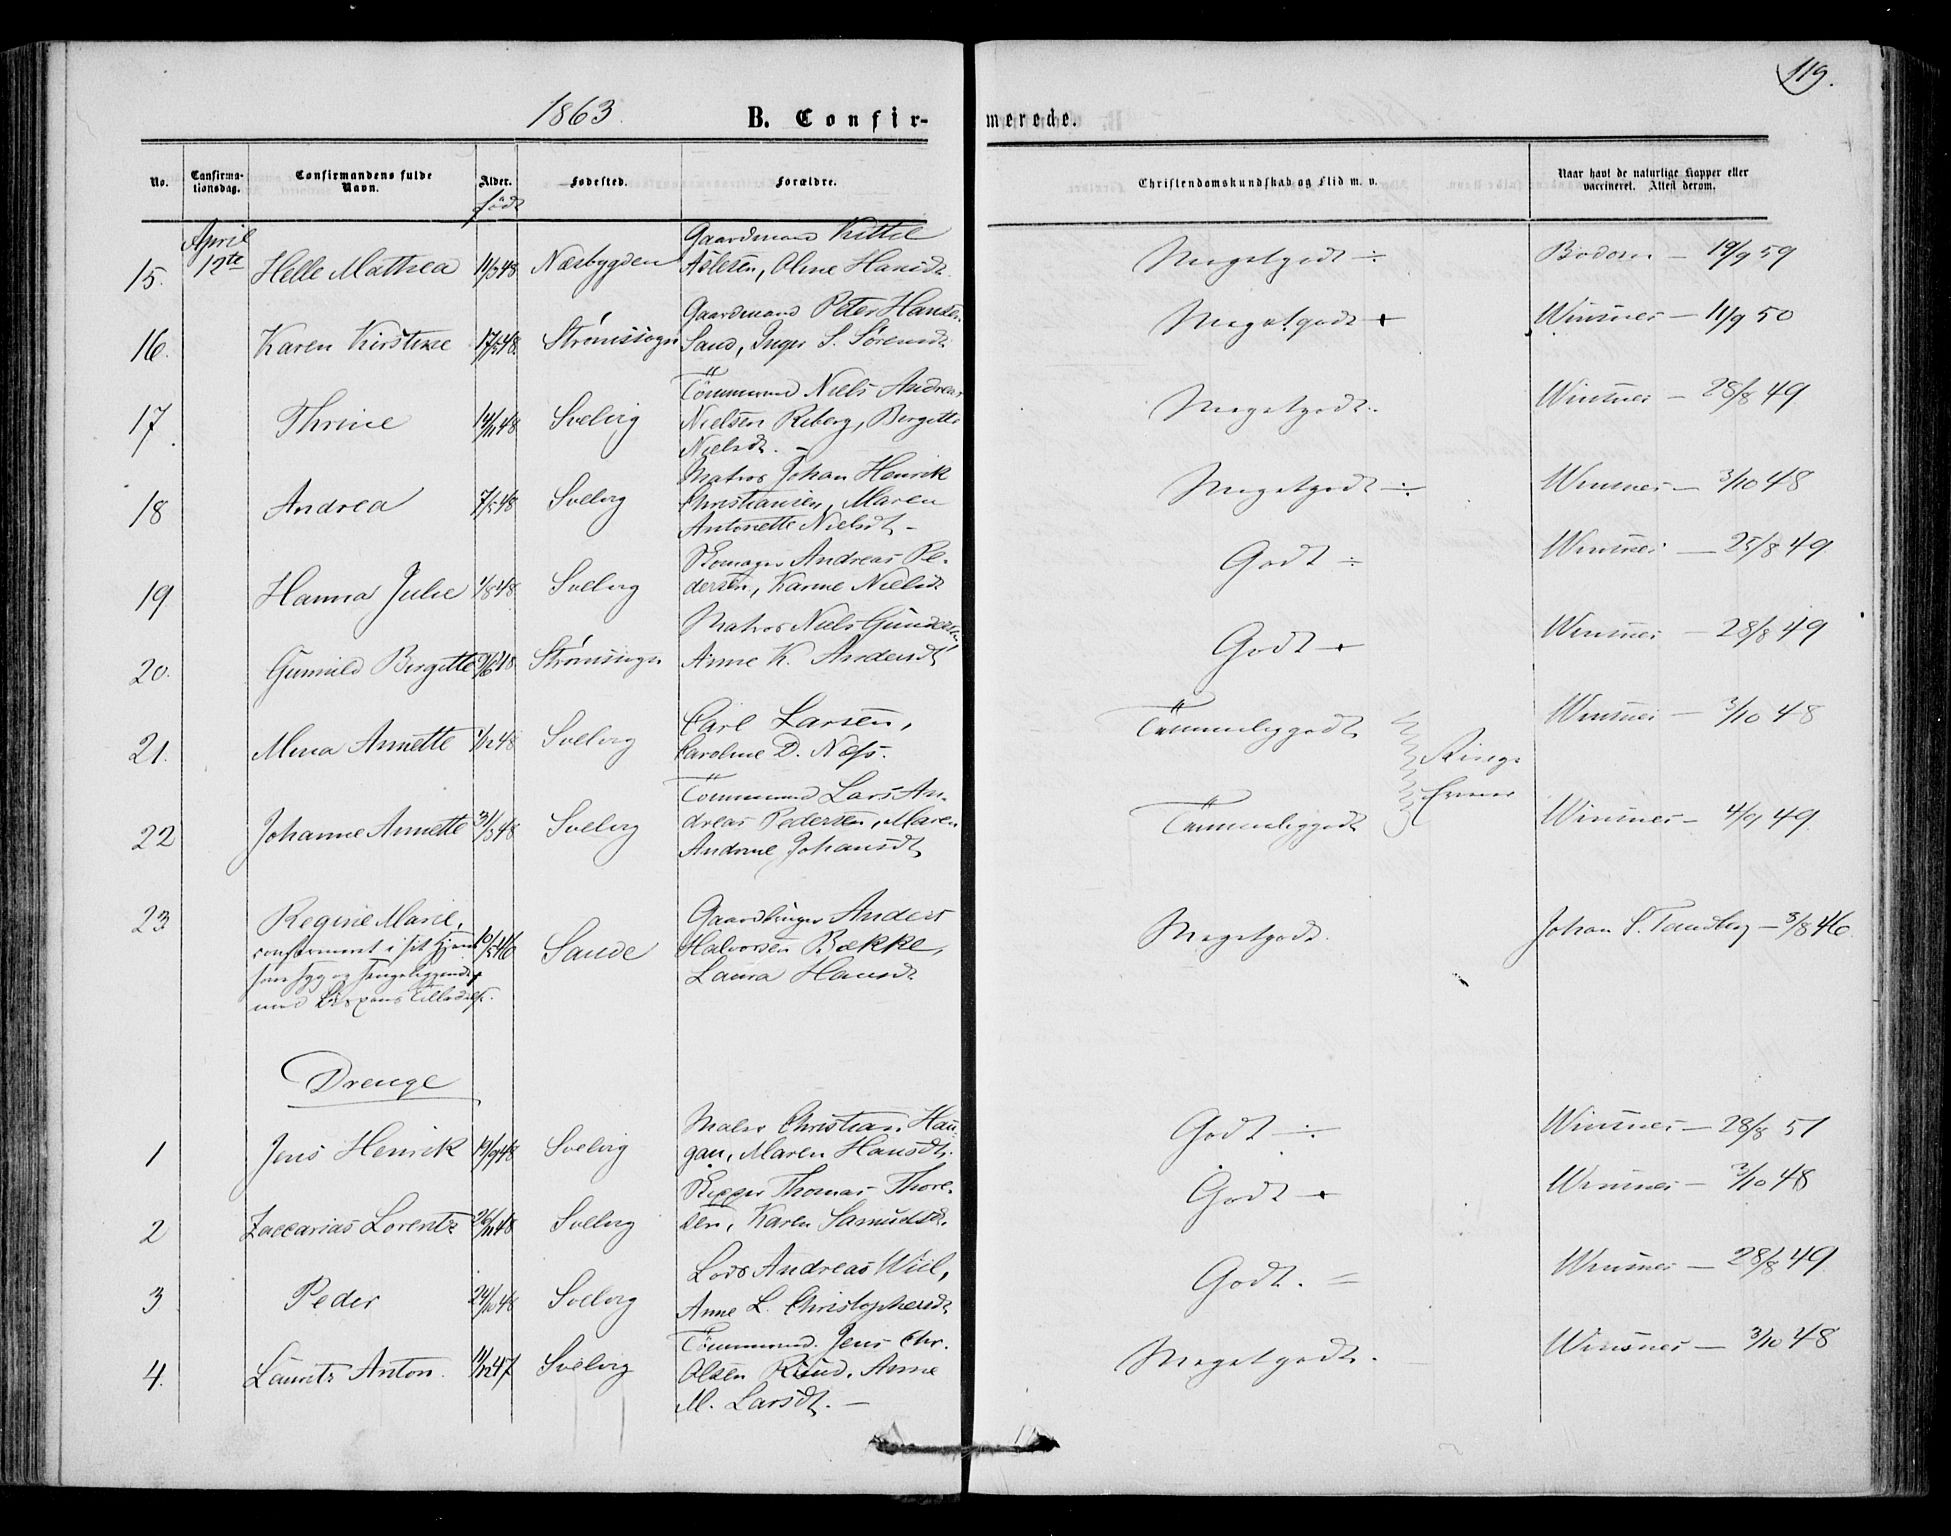 119.
1863.
B. Confir-
merede.
No.
Confirma-
tionsdag.
Confirmandens fulde
Navn.
Alder.
født
Fødested.
Forældre.
Christendomskundskab og Flid m. v.
Naar havt de naturlige Kopper eller
vaccineret. Attest derom.
April
12te
15. Helle Mathea 11/3 48 Næsbygden
Gaardmand Kittel
Aslesen, Oline Hansdt.
Megetgodt ÷
19/9 59
16. Karen Kirstine 17/5 48 Strømssogn
Gaardmand Peter Hansen
Sand, Inger S. Sørensdt.
Megetgodt +
Winsnes — 11/9 50
17. Thrine 14/11 48 Svelvig
Tömmermd Niels Andreas
Nielsen Reberg, Bergitte
Nielsdt. —
Megetgodt.
Winsnes — 28/8 49
18 Andrea 7/5 48 Svelvig
Matros Johan Henrik
Christiansen, Maren
Antonette Nielsdt —
Megetgodt ÷
Winsnes — 3/10 48
19 Hanna Julie 1/8 48 Svelvig
Skomager Andreas Pe-
dersen, Karine Nielsdt
Godt ÷
Winsnes — 25/8 49
20. Gunnild Bergitte 48 Strømssogn
Matros Niels Gundersen
Anne K. Andersdt
Godt +
Winsnes — 28/8 49
21. Mina Annette 48 Svelvig
Carl Larsen,
Caroline D. Næss.
Temmeliggodt
Winsnes — 3/10 48
22 Johanne Annette 31/3 48 Svelvig
Tömmermd Lars An-
dreas Pedersen, Maren
Andrine Johansdt
Temmeliggodt
Winsnes — 4/9 49
23 Regine Marie,
confirmeret i sit Hjem
som syg og sengeliggende
med Bispens Tilladelse.
10/5 46 Sande
Gaardbruger Anders
Halvorsen Bække,
Laura Hansdt
Megetgodt.
Johan S. Tandberg — 3/8 46.
Drenge
1 Jens Henrik 19/9 48 Svelvig
Maler Christian Hau-
gan, Maren Hansdt.
Godt ÷
Winsnes — 28/8 51
2 Zaccarias Lorentz 26/11 48 Svelvig
Skipper Thomas Thore-
sen, Karen Samuelsdt.
Godt +
Winsnes — 3/10 48
3 Peder 24/10 48 Svelvig
Lods Andreas Wiel,
Anne L. Christophersdt
Godt. =
Winsnes — 28/8 49
4. Lauritz Anton. 11/12 47 Svelvig
Tömmermd. Jens Chr.
Olsen Ruud. Anne
M. Larsdt. —
Megetgodt.
Winsnes — 3/10 48